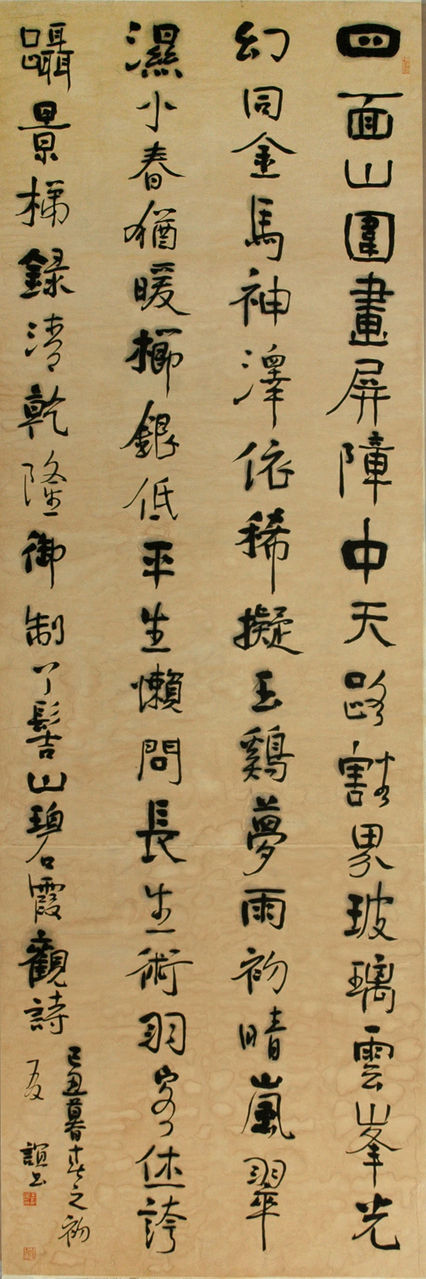 四面山圍畫屏障中天路豁界玻璃雲峯光
幻同金馬神澤依稀擬玉鷄夢雨初晴嵐翠
濕小春猶暖銀低平生懶問長生術羽客休誇
躡景梯錄清乾隆御制丫髻山碧霞觀詩
己丑暮春之初
友誼書